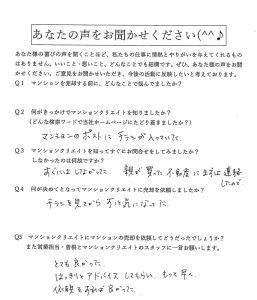 あなたの声をお聞かせください(^^♪
あなた様の喜びの声を聞くことほど、私たちの仕事に情熱とやりがいを与えてくれるもの
はありません。いいこと・悪いこと、どんなことでも結構です。ぜひ、あなた様の声をお聞
かせください。ご意見をお聞かせいただき、今後の活動に反映したいと考えております。
Q1 マンションを売却する前に、どんなことで悩んでましたか?
Q2 何がきっかけでマンションクリエイトを知りましたか?
(どんな検索ワードで当社ホームページにたどり着きましたか?)
マンションのポストに チラシが入っていて。
Q3 マンションクリエイトを知ってすぐにお問合せをしてみましたか?
しなかったのは何故ですか?
すぐにはしなかって。 親が買った不動産にまずは連絡
したので
Q4 何が決めてとなってマンションクリエイトに売却を依頼しましたか?
チラシを見てから ずっと気になって
Q5 マンションクリエイトにマンションの売却を依頼してどうだったでしょうか?
また営業担当・曽根とマンションクリエイトのスタッフに一言お願いします。
とても良かった。
はっきりとアドバイスしてもらい、もっと早く
依頼をすれば良かった。